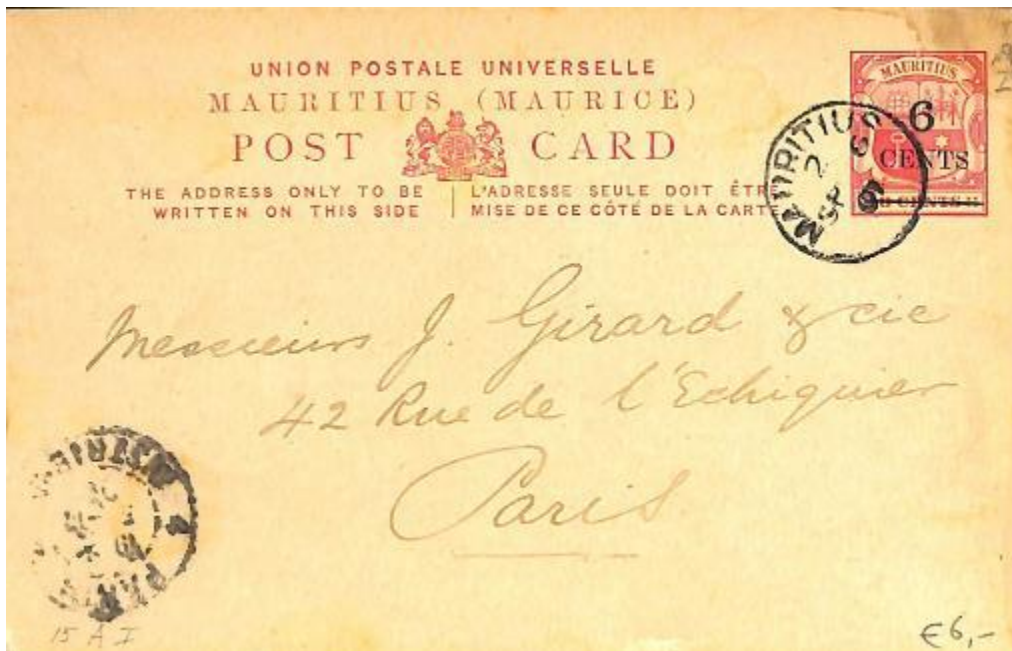 UNION POSTALE UNIVERSELLE
MAURITIUS (MAURICE)
POST CARD
THE ADDRESS ONLY TO BE
WRITTEN ON THIS SIDE
L'ADRESSE SEULE DOIT ÊTRE
MISE DE CE CÔTÉ DE LA CARTE
MAURITIUS
6
CENTS
MAURITIUS
2
SP 6
Messieurs J. Girard & cie
42 Rue de l'Echiquier
Paris
PARIS
15 A I
€6,-